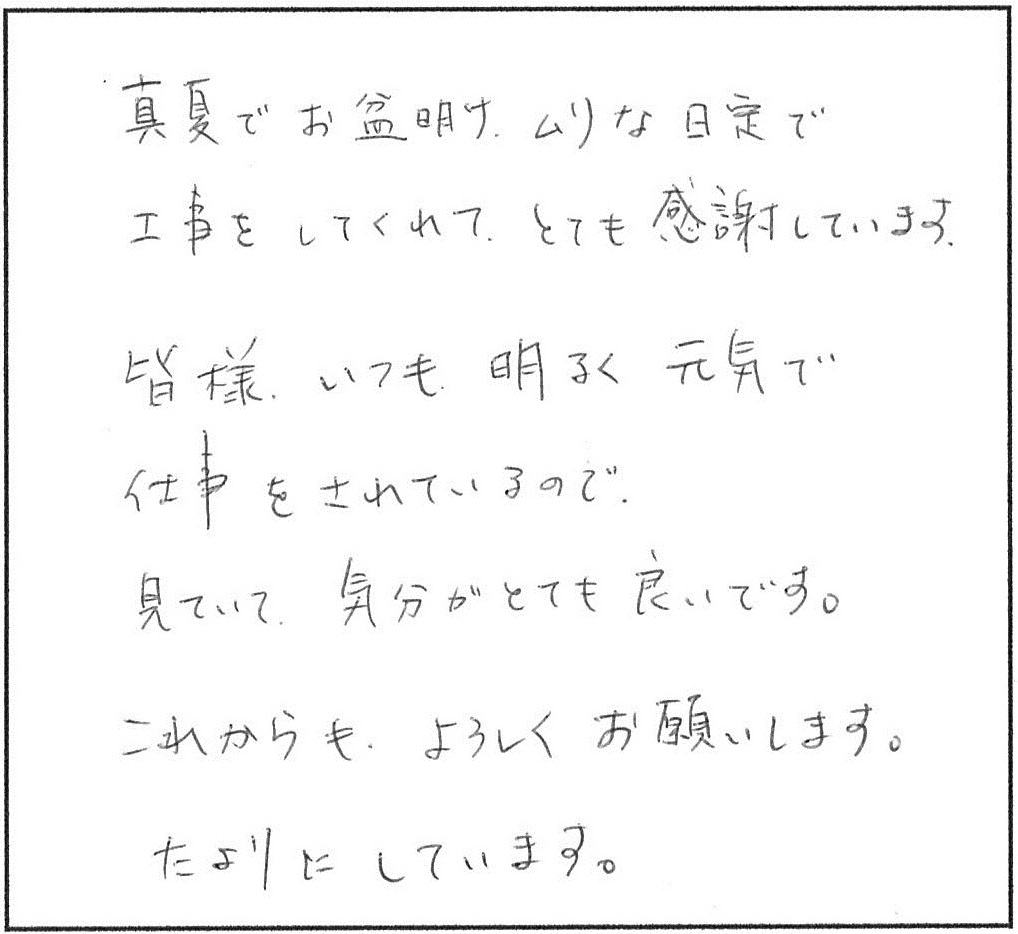 真夏でお盆明け、ムリな日定で
工事をしてくれて、とても感謝しています。
皆様、いつも、明るく元気で
仕事をされているので、
見ていて、気分がとても良いです。
これからも、よろしくお願いします。
たよりにしています。